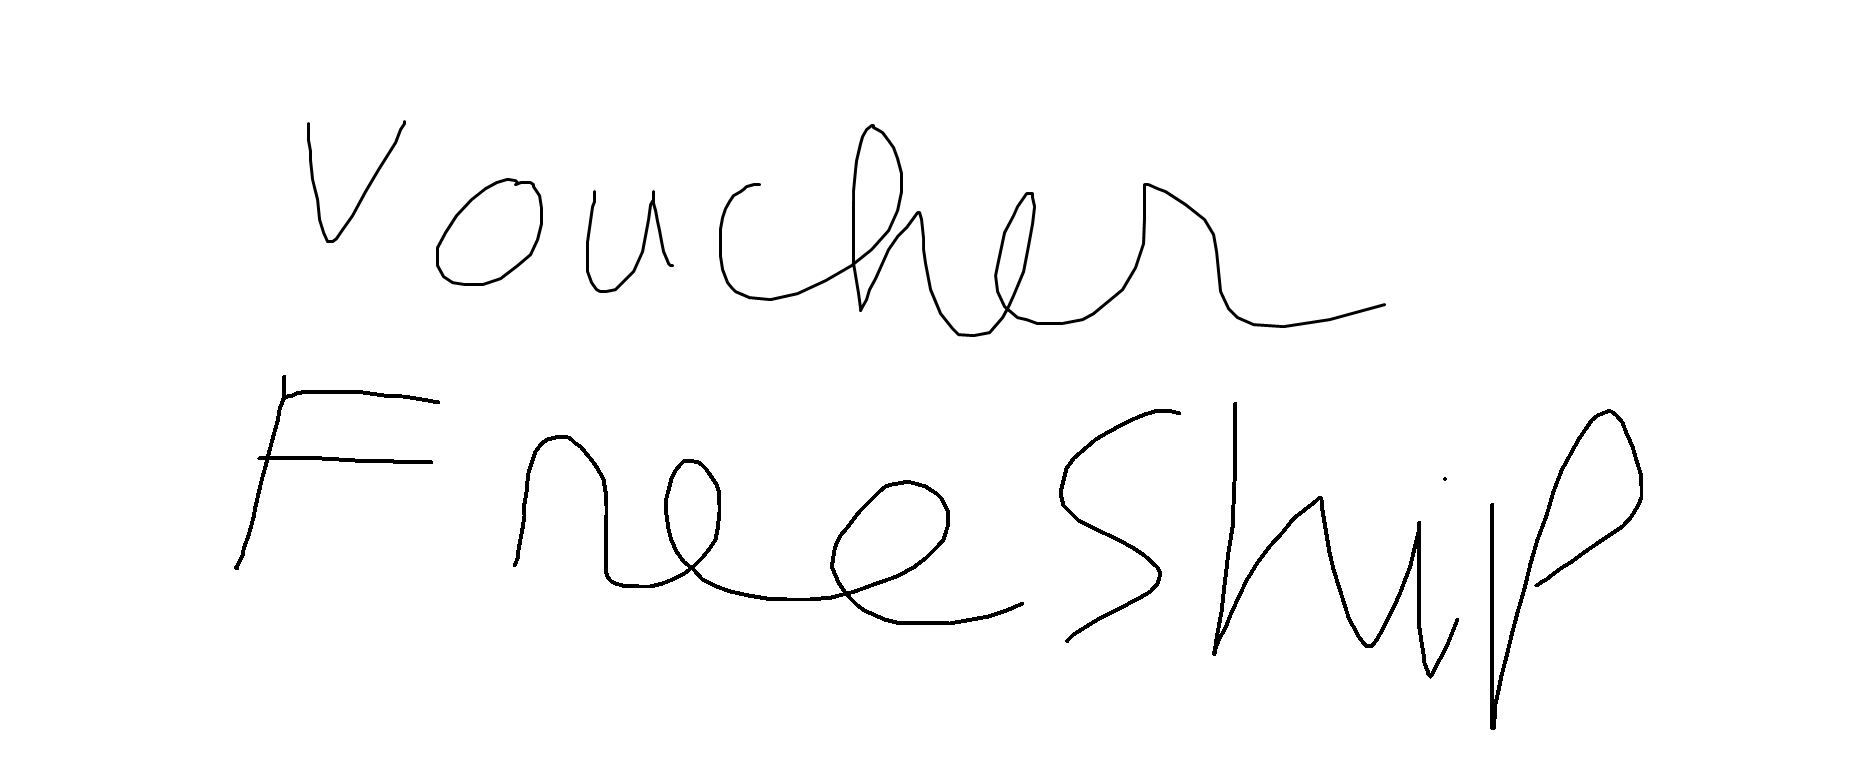 Voucher
FreeShip